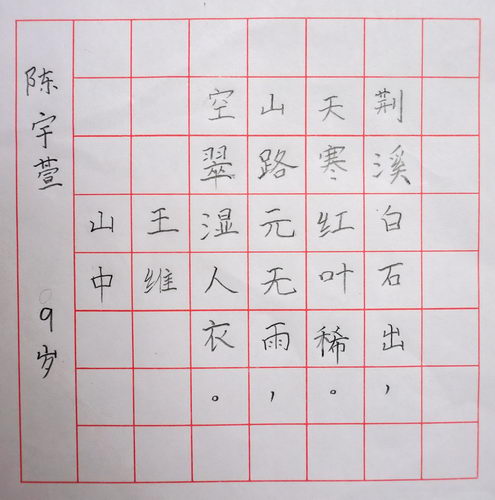 荆溪白石出，
天寒红叶稀。
山路元无雨，
空翠湿人衣。
王维
山中
陈宇萱 9岁